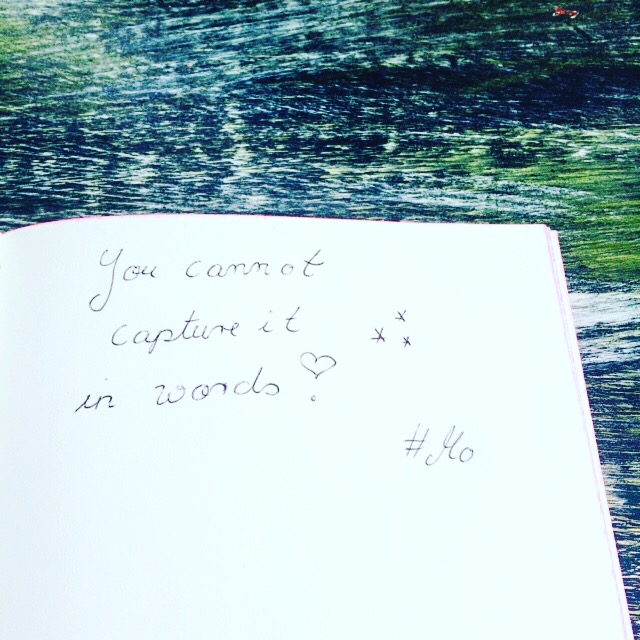 You cannot
capture it
in words
#Mo